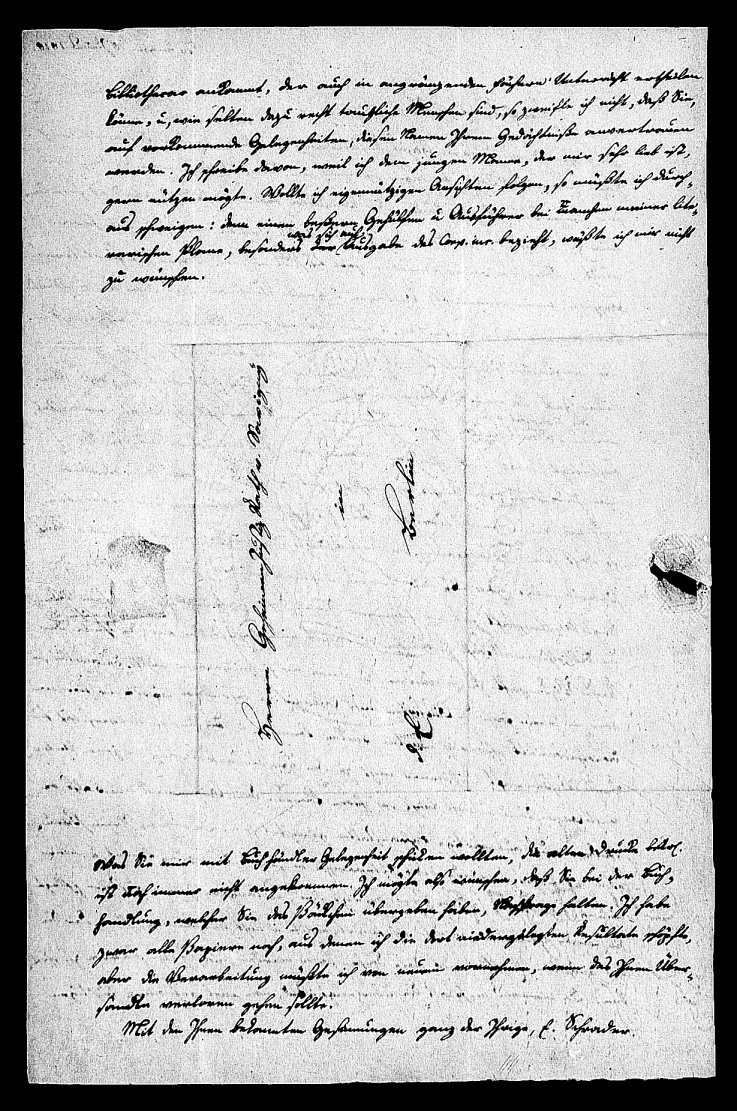 bibliothecar ankommt, der auch in angränzenden Fächern Unterricht ertheilen
könne, u, wie selten dazu recht taugliche Menschen sind, so zweifle ich nicht, daß Sie,
auf vorkommende Gelegenheiten, diesen Namen Ihrem Gedächtniße anvertrauen
werden. Ich schreibe davon, weil ich dem jungen Manne, der mir sehr lieb ist,
gern nützen mögte. Wollte ich eigennützigen Ansichten folgen, so müßte ich durch-
aus schweigen: denn einen beßern Gehülfen u Ausführer bei Manchen meiner lite-
was sich auf
rarischen Plane, besonders der Ausgabe des Corp. iur. bezieht, wüßte ich mir nicht
zu wünschen.
Herrn Geheimen Rath v. Savigny
in
Berlin
d. E.
Was Sie mir mit Buchhändler Gelegenheit schicken wollten, die alten Drucke betr.
ist noch immer nicht angekommen. Ich mögte also wünschen, daß Sie bei der Buch-
handlung, welcher Sie das Päckchen übergeben haben, Nachfrage halten. Ich habe
zwar alle Papiere noch, aus denen ich die dort niedergelegten Resultate schöpfte,
aber die Verarbeitung müßte ich von neuem vornehmen, wenn das Ihnen Über-
sandte verloren gehen sollte.
Mit den Ihnen bekannten Gesinnungen ganz der Ihrige, E. Schrader.